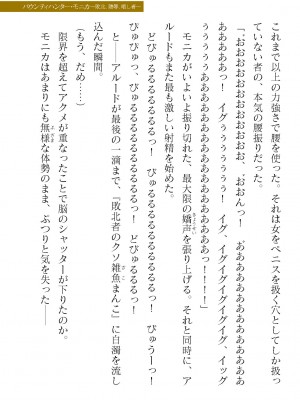 バウンティハンター・モニカ～敗北、陵辱、晒し者～
これまで以上の力強さで腰を使った。それは女をペニスを扱く穴としてしか扱っ
ていない者の、本気の腰振りだった。
「、おおおおおおおおおお、、おおんっ！　、あああああああああああああああ
あああああっ！　イグぅぅぅぅっ！　イグイグイグイグイグイグ、イッッグ
ぅぅぅぅううああああああああああっっっ！！！」
モニカがいよいよ振り切れた、最大限の嬌声を張り上げる。それと同時に、ア
ルードもまた最も激しい射精を始めた。
どびゅるるるるるるっ！　びゅるるるるるるるるっ！　びゅうーっ！
びゅびゅっ、びゅるるるるるるるっ！　どびゅるるるっ！
と――アルードが最後の一滴まで、『敗北者のクソ雑魚まんこ』に白濁を流し
込んだ瞬間。
（もう、だめ……）
限界を超えてアクメが重なったことで脳のシャッターが下りたのか。
モニカはあまりにも無様な体勢のまま、ぷつりと気を失った――